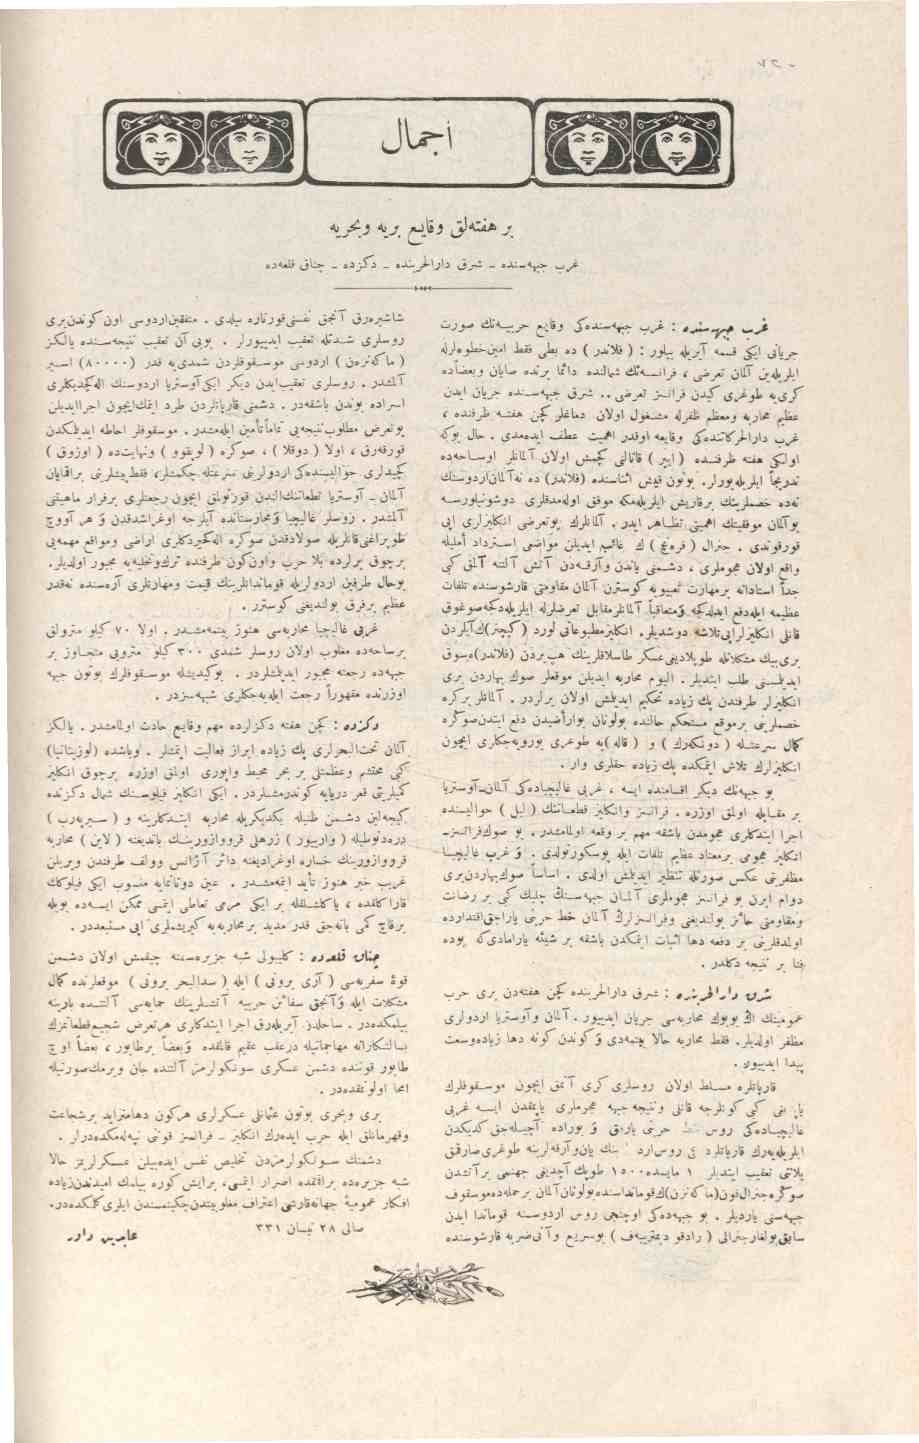 اجمال
بر هفته‌لق وقایع بریه وبحریه
غرب جبهه‌سنده ـ شرق دارالحربنده ـ دکزده ـ چناق قلعه‌ده
غرب جبهه‌سنده : غرب جبهه‌سنده‌کی وقایع حربیه‌نك صورت
جریانی ایکی قسمه آیریله بیلور : ( فلاندر ) ده بطی فقط امین خطوه‌لرله
ایلریله‌ین آلمان تعرضی ، فرانسه‌نك شمالنده دائما یرنده صایان وبعضاً‌ده
کری‌یه طوغری کیدن فرانسز تعرضی .. شرق جبهه‌سنده جریان ایدن
عظیم محاربه ومعظم ظفرله مشغول اولان دماغلر کچن هفته ظرفنده ،
غرب دارالحرکاتنده‌کی وقایعه اوقدر اهمیت عطف ایده‌مدی . حال بوکه
اولکی هفته ظرفنده ( ایپر ) قانالنی کچمش اولان آلمانلر اوساحه‌ده
تدریجاً ایلریله‌یورلر. بوتون قیش اثناسنده (فلاندر) ده نه آلمان اردوسنك
نه‌ده خصملرینك برقاریش ایلریله‌مکه موفق اوله‌مدقلری دوشونیلورسه
بو آلمان موفقیتك اهمیتی تظاهر ایدر. آلمانلرك بوتعرضی انکلیزلری اپی
قورقوتدی . جنرال ( فره‌نچ ) ك غائب ایدیلن مواضعی استرداد املیله
واقع اولان هجوملری ، دشمنی یاندن وآرقه‌دن آتش آلتنه آلمق کبی
جداً استادانه بر مهارت تعبیویه کوسترن آلمان مقاومتی قارشوسنده تلفات
عظیمه ایله دفع ایدلدکجه ومتعاقباً آلمانلر مقابل تعرضلرله ایلریله‌دکجه صوغوق
قانلی انکلیزلر اپی تلاشه دوشدیلر. انکلیز مطبوعاتی لورد ( کیچنر) ك آیلردن
بری بیك مشکلاتله طوپلادیغی عسکر طاسلاقلرینك هپ بردن (فلاندر)ه سوق
ایدیلمسنی طلب ایتدیلر. الیوم محاربه ایدیلن موقعلر صوك بهاردن بری
انکلیزلر طرفندن پك زیاده تحکیم ایدیلمش اولان یرلردر. آلمانلر برکره
خصملرینی بر موقع مستحکم حالنده بولونان بو اراضیدن دفع ایتدن صوکره
کمال سرعتله ( دونکه‌رك ) و ( قاله ) یه طوغری یورویه‌جکلری ایچون
انکلیزلرك تلاش ایتمکده پك زیاده حقلری وار .
بو جبهه‌نك دیکر اقسامنده ایسه ، غربی غالیچیاده‌کی آلمان ـ آوستریا
بر مقابله اولمق اوزره. فرانسز وانکلیز قطعاتنك ( لیل ) حوالیسنده
اجرا ایتدکلری هجومدن باشقه مهم بر وقعه اولمامشدر . بو صوك فرانسز ـ
انکلیز هجومی بر معتاد عظیم تلفات ایله پوسکورتولدی . و غرب غالیچیا
مظفریتی عکس صورتله تنظیر ایدیلمش اولدی . اساساً صوك بهاردن بری
دوام ایدن بو فرانسز هجوملری آلمان جبهه‌سنك چلیك کبی بر رضانت
ومقاومتی حائز بولندیغنی وفرانسزلرك آلمان خط حربنی یارا‌جق اقتدارده
اولمدقلرینی بر دفعه دها اثبات ایتمکدن باشقه بر شیئه یارامادی که بوده
فنا بر نتیجه دکلدر.
شرق دارالحربنده : شرق دارالحربنده کچن هفته‌دن بری حرب
عمومینك اك بویوك محاربه‌سی جریان ایدییور. آلمان وآوستریا اردولری
مظفر اولدیلر. فقط محاربه حالا بیتمه‌دی و کوندن کونه دها زیاده وسعت
پیدا ایدییور.
قارپاتلره مسلط اولان روسلری کری آتمق ایچون موسقوفلرك
یاپدیغی کبی کونلرجه قانلی ونتیجه جبهه هجوملری یاپمقدن ایسه غربی
غالیچیاده‌کی روس خط حربنی یارمق و بوراده آچیله‌جق کدیکدن
ایلریله‌یه‌رك قارپاتلرده کی روس اردوسنك یان وآرقه‌لرینه طوغری صارقمق
پلاننی تعقیب ایتدیلر . ١ مایسده ١٥٠٠ طوپك آچدیغی جهنمی بر آتشدن
صوکره جنرال فون (ماکه‌نزن) ك قومانداسنده بولونان آلمان بر حمله‌ده موسقوف
جبهه‌سنی یاردیلر. بو جبهه‌ده‌کی اوچنجی روس اردوسنه قوماندا ایدن
سابق بولغار جنرالی ( رادقو دیمتریه‌ف ) بو سریع وآنی ضربه قارشوسنده
شاشیره‌رق آنجق نفسنی قورتاره بیلدی . متفقین اردوسی اون کوندن بری
روسلری شدتله تعقیب ایدییورلر . بو بی آن تعقیب نتیجه‌سنده یالکز
( ماکه‌نزه‌ن ) اردوسی موسقوفلردن شمدی‌یه قدر (٨٠٠٠٠) اسیر
آلمشدر. روسلری تعقیب ایدن دیکر ایکی آوستریا اردوسنك اله کچیدکلری
اسرا‌ده بوندن باشقه‌در. دشمنی قارپاتلردن طرد ایتمك ایچون اجرا ایدیلن
بو تعرض مطلوب نتیجه‌یی تماماً تأمین ایله‌مشدر. موسقوفلر احاطه ایدیلمکدن
قورقه‌رق ، اولا ( دوقلا ) ، صوکره ( لوپقوو ) ونهایت‌ده ( اوزوق )
کچیدلری حوالیسنده‌کی اردولرینی سرعتله چکمشلر، فقط پیشلرینی براقمایان
آلمان ـ آوستریا قطعاتنك الندن قورتولمق ایچون رجعتلری بر فرار ماهیتنی
آلمشدر . روسلر غالیچیا ومجارستانده آیلرجه اوغراشدقدن و هر آووچ
طوپراغنی قانلریله صولادقدن صوکره اله کچیردکلری اراضی ومواقع مهمه‌یی
بر چوق یرلرده بلا حرب واون کون ظرفنده ترك وتخلیه‌یه مجبور اولدیلر.
بوحال طرفین اردولریله قوماندانلرینك قیمت ومهارتلری آره‌سنده نه‌قدر
عظیم بر فرق بولندیغنی کوسترر .
غربی غالیچیا محاربه‌سی هنوز بیتمه‌مشدر. اولا ٧٠ کیلو مترولق
بر ساحه‌ده مغلوب اولان روسلر شمدی ٣٠٠ کیلو مترویی متجاوز بر
جبهه‌ده رجعته مجبور ایدیلمشلردر. بو کیدیشله موسقوفلرك بوتون جبهه
اوزرنده مقهوراً رجعت ایله‌یه‌جکلری شبهه‌سزدر.
دکزده : کچن هفته دکزلرده مهم وقایع حادث اولمامشدر. یالکز
آلمان تحت البحرلری پك زیاده ابراز فعالیت ایتمشلر. وباشده (لوزیتانیا)
کبی محتشم وعظمتلی بر بحر محیط واپوری اولمق اوزره برچوق انکلیز
کمیلرینی قعر دریایه کوندرمشلردر. ایکی انکلیز فیلوسنك شمال دکزنده
کیجه‌لین دشمن ظنیله یکدیکریله محاربه ایتدکلرینه و ( سوپه‌رب )
دره‌دنوطیله ( واریور ) زرهلی قرووازورینك باتدیغنه ( لاین ) محاربه
قرووازورینك خساره اوغرادیغنه دائر آژانس وولف طرفندن ویریلن
غریب خبر هنوز تأید ایتمه‌مشدر. عین دونانمایه منسوب ایکی فیلونك
قارا‌کلقده ، یا‌کلشلقله بر ایکی مرمی تعاطی ایتمسی ممکن ایسه‌ده بویله
برقاچ کمی باته‌جق قدر مدید بر محاربه‌یه کیریشملری اپی مستبعددر.
چناق قلعه‌ده : کلیبولی شبه جزیره‌سنه چیقمش اولان دشمن
قوۀ سفریه‌سی ( آری برونی ) ایله ( سدالبحر برونی ) موقعلرنده کمال
مشکلات ایله و آنجق سفائن حربیه آتشلرینك حمایه‌سی آلتنده بارینه
بیلمکده‌در. ساحلدن آیریله‌رق اجرا ایتدکلری هر تعرض شجیع قطعاتمزك
بسالتکارانه مهاجماتیله درعقب عقیم قالمقده وبعضاً بر طابور ، بعضاً اوچ
طابور قوتنده دشمن عسکری سونکولرمز آلتنده جان ویرمك صورتیله
امحا اولونمقده‌در.
بری وبحری بوتون عثمانلی عسکرلری هرکون دها متزاید بر شجاعت
وقهرمانلق ایله حرب ایده‌رك انکلیز ـ فرانسز قوتنی تپه‌له‌مکده‌درلر.
دشمنك سونکولرمزدن تخلیص نفس ایده‌بیلن عسکرلرینك حالا
شبه جزیره‌ده براقمقده اصرار ایتمسی، برایش کوره بیلمك امیدندن زیاده
افکار عمومیۀ جهانه قارشی اعتراف مغلوبیتدن چکینمسندن ایلری کلمکده‌در.
صالی ٢٨ نیسان ٣٣١
عابدین داور